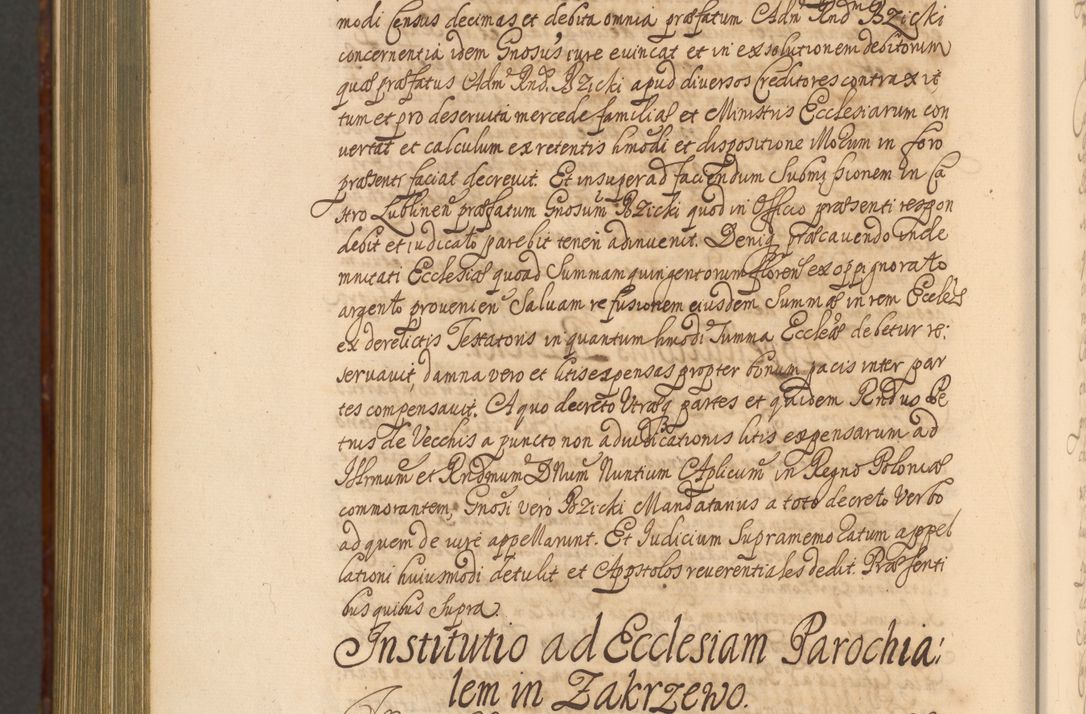 modi Census decimas et debita omnia præfatum Adm Rnd Bzicki
concernentia idem Gnosus iure evincat et in exsolutionem debitorum
quæ præfatus Adm Rnd. Bzicki apud diversos Creditores contraxit,
tum et pro deservita mercede familiæ et Ministris Ecclesiarum con
vertat et calculum ex retentis hmodi et dispositione Motum in foro
præsenti faciat decrevit. Et insuper ad faciendum Submissionem in Ca
stro Lublinen præfatum Gnosum Bzicki quod in Officio præsenti respon
debit et iudicato parebit teneri adinvenit. Deniq præcavendo inde
mnitati Ecclesiæ quoad Summam quingentorum floren ex oppignorato
argento provenien Salvam refusionem eiusdem Summæ in rem Eccles
ex derelictis Testatoris in quantum hmodi Summa Eccleæ debetur re:
servavit, damna vero et litis expensas propter bonum pacis inter par
tes compensavit. A quo decreto Utræq partes et quidem Rndus Pe
trus de Vecchis a puncto non adiudicationis litis expensarum ad
Illrmum et Rndmum DNum Nuntium Aplicum in Regno Poloniæ
commorantem, Gnosi vero Bzicki Mandatarius a toto decreto Verbo
ad quem de iure appellarunt. Et Iudicium Supramemoratum appel
lationi huiusmodi detulit et Apostolos reverentiales dedit. Præsenti
bus quibus Supra.
Institutio ad Ecclesiam Parochia:
lem in Zakrzewo.